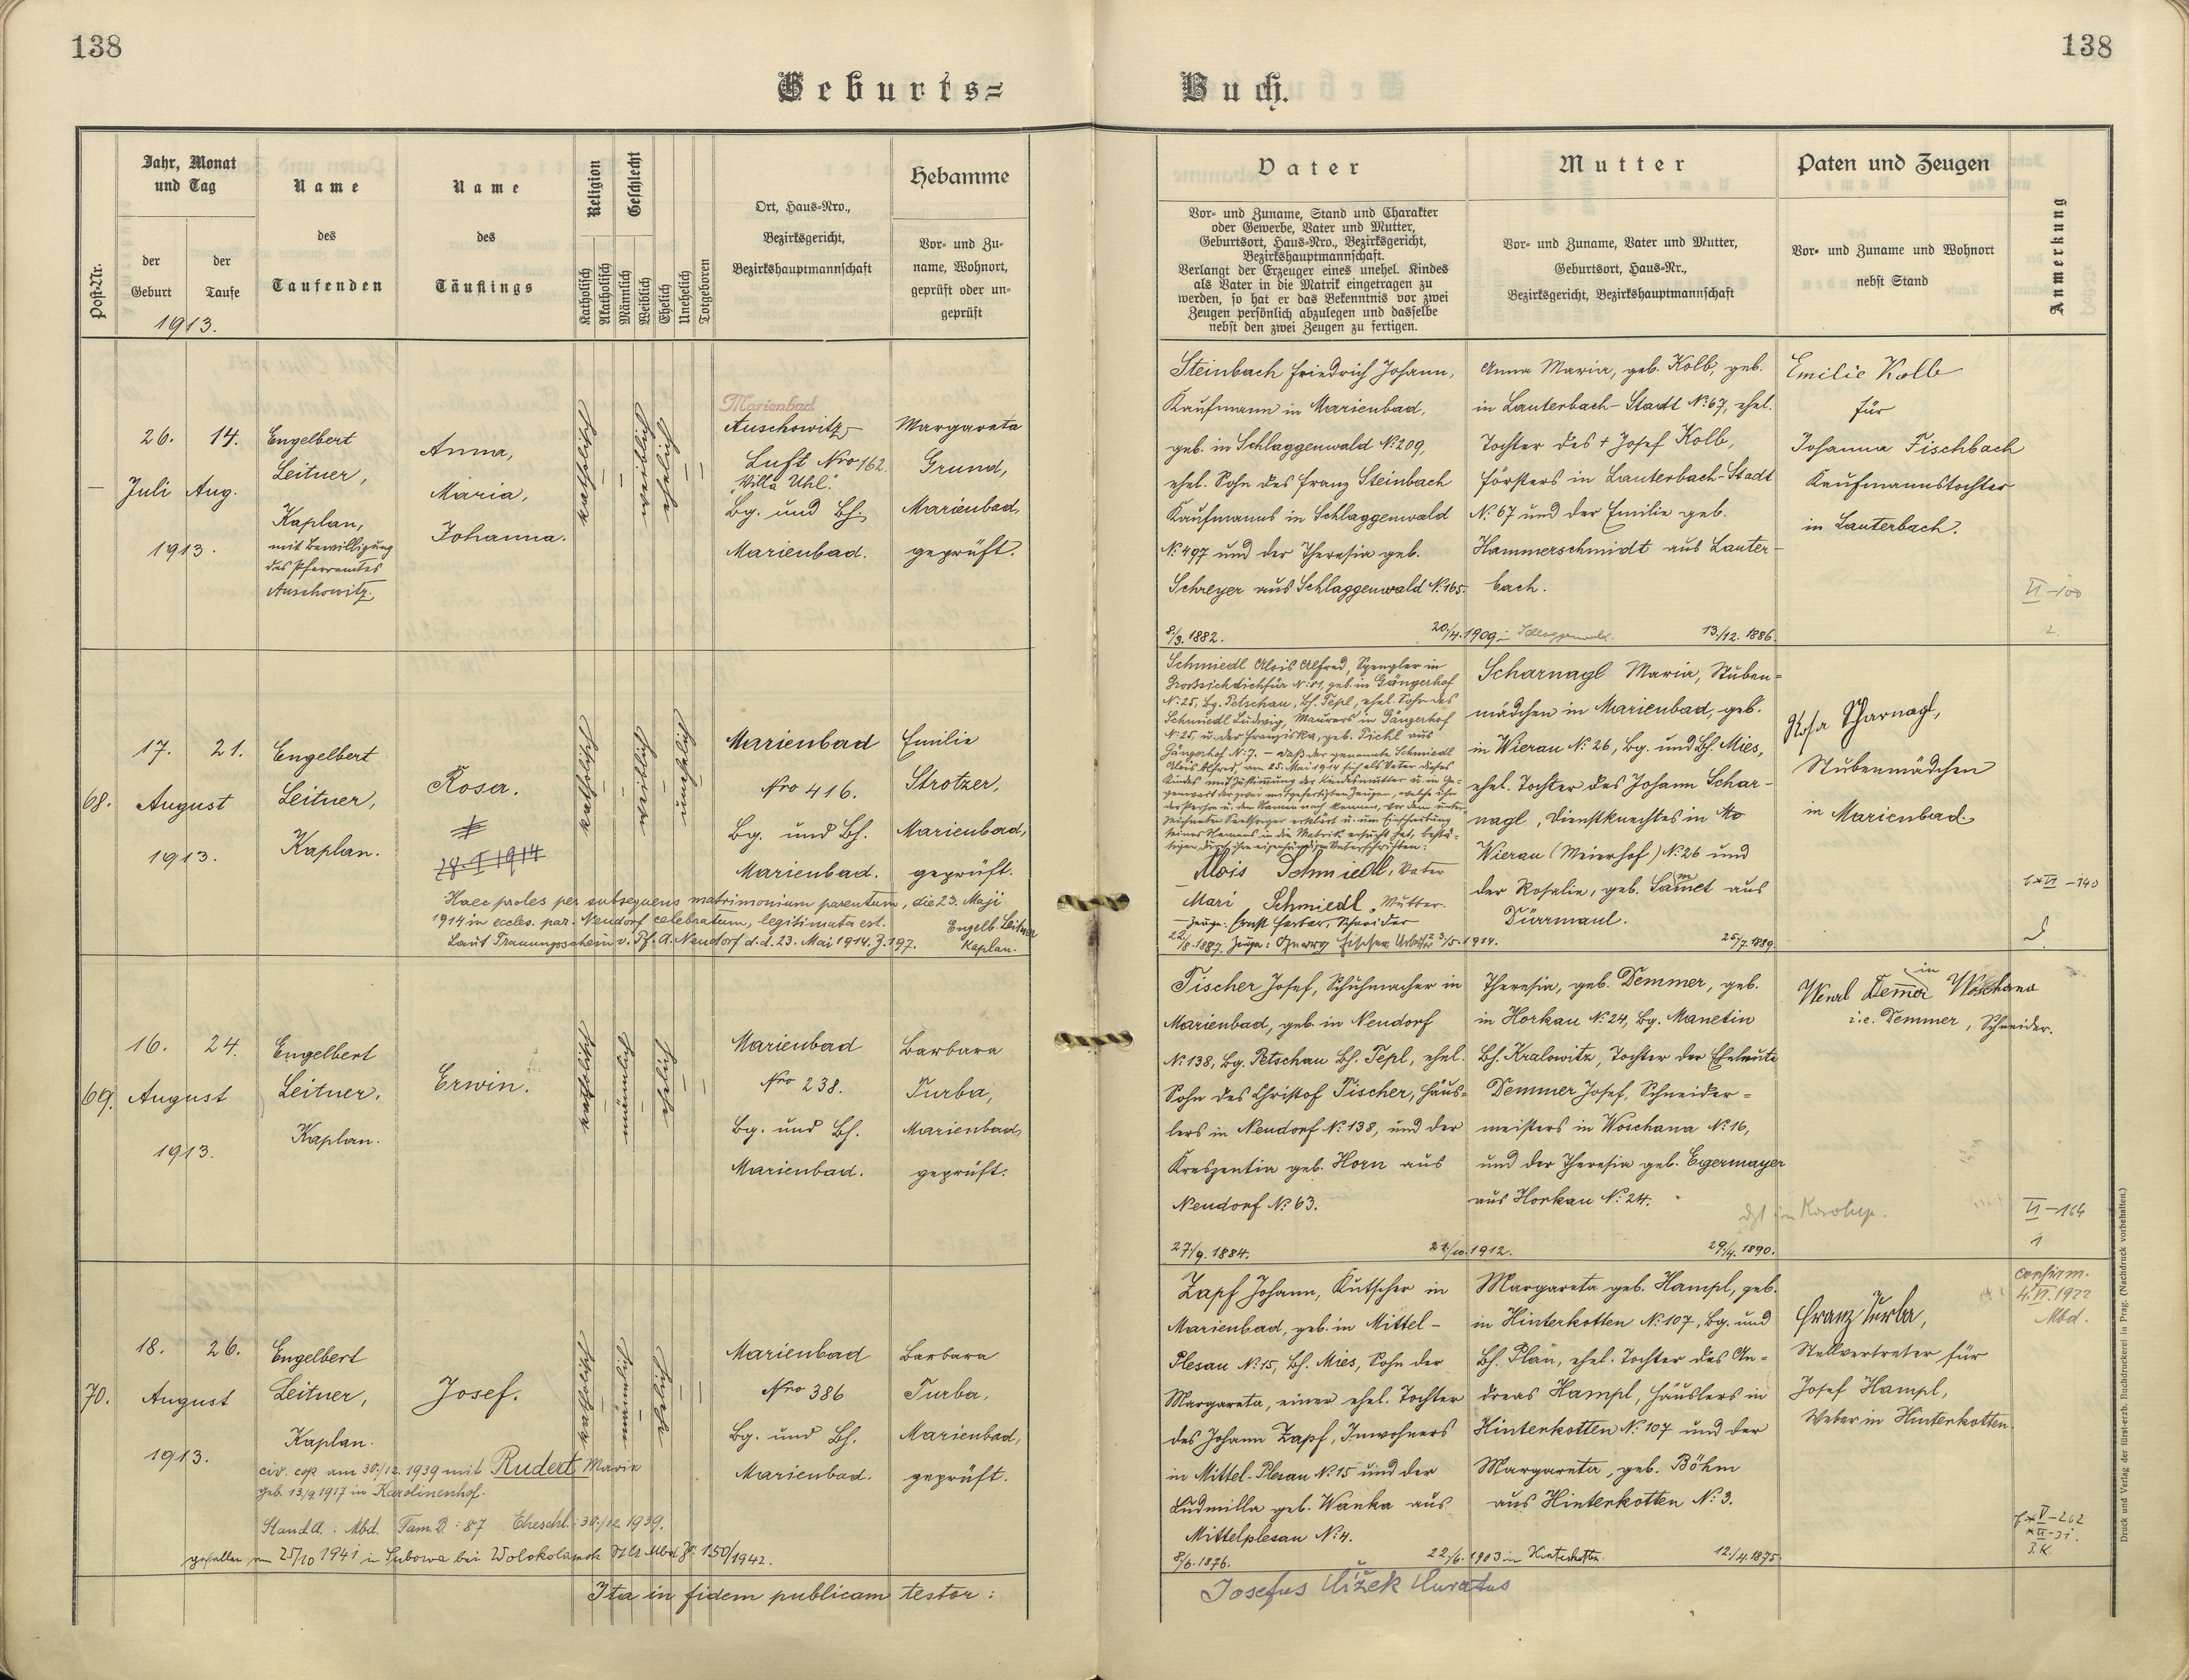 138
138
Geburts=
Buch.
Jahr, Monat
und Tag
der
Geburt
der
Taufe
1913.
Post-Nr.
Name
des
Taufenden
Name
des
Täuflings
Religion
Geschlecht
Katholisch
Akatholisch
Männlich
Weiblich
Ehelich
Unehelich
Totgeboren
Ort, Haus-Nro.,
Bezirksgericht,
Bezirkshauptmannschaft
Hebamme
Vor- und Zu-
name, Wohnort,
geprüft oder un-
geprüft
Vater
Vor- und Zuname, Stand und Charakter
oder Gewerbe, Vater und Mutter,
Geburtsort, Haus-Nro., Bezirksgericht,
Bezirkshauptmannschaft.
Verlangt der Erzeuger eines unehel. Kindes
als Vater in die Matrik eingetragen zu
werden, so hat er das Bekenntnis vor zwei
Zeugen persönlich abzulegen und dasselbe
nebst den zwei Zeugen zu fertigen.
Mutter
Vor- und Zuname, Vater und Mutter,
Geburtsort, Haus-Nr.,
Bezirksgericht, Bezirkshauptmannschaft
Paten und Zeugen
Vor- und Zuname und Wohnort
nebst Stand
Anmerkung
—
26. 14.
Juli Aug.
1913.
Engelbert
Leitner,
Kaplan,
mit Bewilligung
des Pfarramtes
Auschowitz.
Anna,
Maria,
Johanna.
katholisch
weiblich
ehelich
Marienbad
Auschowitz-
Luft Nro 162.
"Villa Uhl."
Bg. und Bh.
Marienbad.
Margareta
Grund,
Marienbad,
geprüft.
Steinbach Friedrich Johann,
Kaufmann in Marienbad,
geb. in Schlaggenwald No. 209,
ehel. Sohn des Franz Steinbach
Kaufmanns in Schlaggenwald
No. 497 und der Theresia geb.
Schreyer aus Schlaggenwald No. 165.
8./3. 1882.
20./4. 1909 in Schlaggenwald.
Anna Maria, geb. Kolb, geb.
in Lauterbach-Stadt No. 67, ehel.
Tochter des + Josef Kolb,
Försters in Lauterbach-Stadt
No. 67 und der Emilie geb.
Hammerschmidt aus Lauter-
bach.
13./12. 1886.
Emilie Kolb
für
Johanna Fischbach
Kaufmannstochter
in Lauterbach.
VI-100
2.
68.
17. 21.
August
1913.
Engelbert
Leitner,
Kaplan.
Rosa.
katholisch
weiblich
unehelich
Marienbad
Nro 416.
Bg. und Bh.
Marienbad.
Emilie
Strotzer,
Marienbad,
geprüft.
Haec proles per subsequens matrimonium parentum, die 23. Maji
1914 in eccles. par. Neudorf celebratum, legitimata est.
Laut Trauungsschein v. Pf. A. Neudorf d.d. 23. Mai 1914. Z. 197.
Engelb. Leitner
Kaplan.
Schmiedl Alois Alfred, Spengler in
Grossichdichfür No. 81, geb. in Gängerhof
No. 25, Bg. Petschau, Bh. Tepl, ehel. Sohn des
Schmiedl Ludwig, Maurers in Gängerhof
No. 25, u. der Franziska, geb. Pichl aus
Gängerhof No. 7. – Daß der genannte Schmiedl
Alois Alfred, am 25. Mai 1914 sich als Vater dieses
Kindes mit Zustimmung der Kindesmutter u. in Ge-
genwart der zwei mitgefertigten Zeugen, welche ihn
der Person u. dem Namen nach kennen, vor dem unter-
zeichneten Seelsorger erklärt u. um Einschreibung
seines Namens in die Matrik ersucht hat, bestä-
tigen durch ihre eigenhändigen Unterschriften:
Alois Schmiedl, Vater
Mari Schmiedl, Mutter.
25./7. 1889.
Scharnagl Maria, Stuben-
mädchen in Marienbad, geb.
in Wierau No. 26, Bg. und Bh. Mies,
ehel. Tochter des Johann Schar-
nagl, Dienstknechtes in
Wierau (Meierhof) No. 26 und
der Rosalie, geb. aus
Dürrmaul.
Rosa Scharnagl,
Stubenmädchen
in Marienbad.
69.
16. 24.
August
1913.
Engelbert
Leitner,
Kaplan.
Erwin.
katholisch
männlich
ehelich
Marienbad
Nro 238.
Bg. und Bh.
Marienbad.
Barbara
Turba,
Marienbad,
geprüft.
Fischer Josef, Schuhmacher in
Marienbad, geb. in Neudorf
No. 138, Bg. Petschau Bh. Tepl, ehel.
Sohn des Christof Fischer, Häus-
lers in Neudorf No. 138, und der
Kreszentia geb. Horn aus
Neudorf No. 63.
27./9. 1884.
Theresia, geb. Demmer, geb.
in Horkau No. 24, Bg. Manetin
Bh. Kralowitz, Tochter der Eheleute
Demmer Josef, Schneider-
meisters in Woschana No. 16,
und der Theresia geb. Egermayer
aus Horkau No. 24.
29./4. 1890.
Wenzl Demer in Woschana
i.e. Demmer, Schneider.
VI-164
1
70.
18. 26.
August
1913.
Engelbert
Leitner,
Kaplan.
Josef.
katholisch
männlich
ehelich
Marienbad
Nro 386
Bg. und Bh.
Marienbad.
Barbara
Turba,
Marienbad,
geprüft.
civ. cop. am 30./12. 1939 mit Rudert Marie
geb. 13./9. 1917 in Karolinenhof.
Stand.A.: Mbd. Fam.B.: 87 Eheschl.: 30./12. 1939.
gefallen am 25/10 1941 in Subowa bei Wolokolamsk Mbd 150/1942.
Zapf Johann, Kutscher in
Marienbad, geb. in Mittel-
Plesau No. 15, Bh. Mies, Sohn der
Margareta, einer ehel. Tochter
des Johann Zapf, Inwohners
in Mittel-Plesau No. 15 und der
Ludmilla geb. Wanka aus
Mittelplesau No. 4.
8/6. 1876.
22./6. 1903 in Hinterkotten.
Margareta geb. Hampl, geb.
in Hinterkotten No. 107, Bg. und
Bh. Plan, ehel. Tochter des An-
dreas Hampl, Häuslers in
Hinterkotten No. 107 und der
Margareta, geb. Böhm
aus Hinterkotten No. 3.
12./4. 1875
Franz Turba,
Stellvertreter für
Josef Hampl,
Weber in Hinterkotten.
confirm.
4.VI.1922
Mbd.
Ita in fidem publicam testor:
Josefus Čížek Curatus
Druck und Verlag der fürsterzb. Buchdruckerei in Prag. (Nachdruck vorbehalten.)